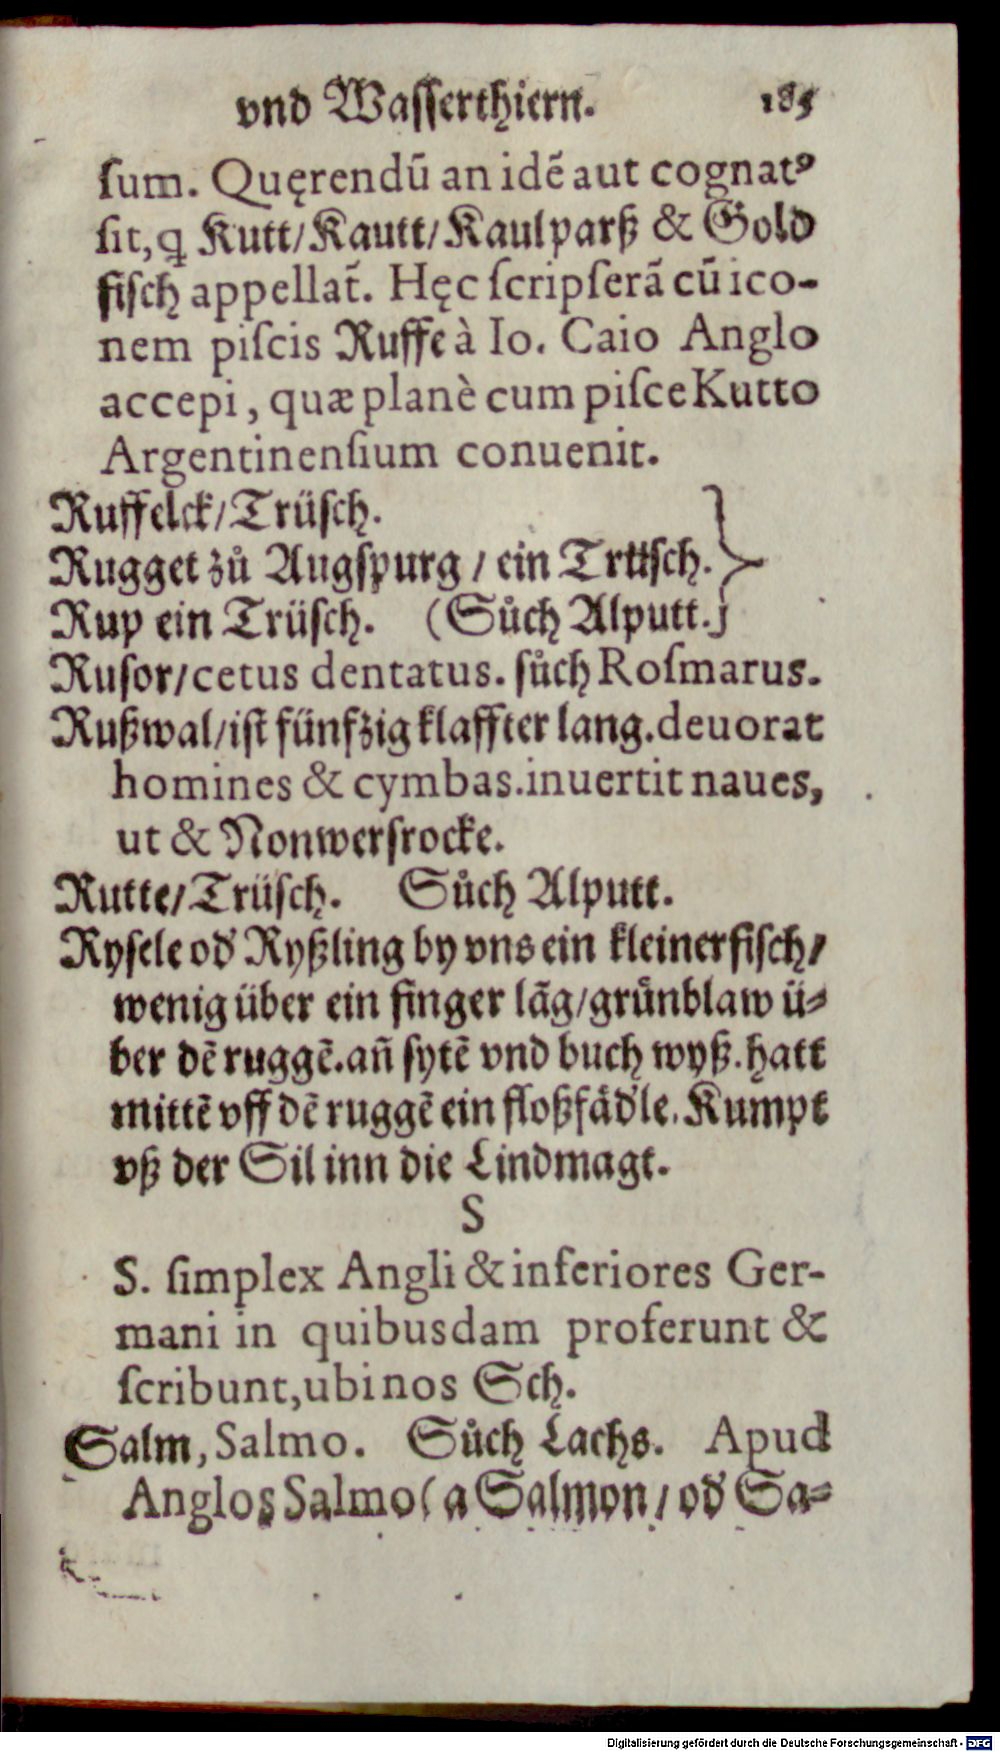 vnd Wasserthiern. 185
ſum. Quęrendū an idẽ aut cognatꝰ
ſit, ꝗ Kutt/ Kautt/ Kaulparß & Gold
fiſch appellat̃. Hęc ſcripſerã cũ ico-
nem piſcis Ruffe à Io. Caio Anglo
accepi, quæ planè cum piſce Kutto
Argentinenſium conuenit.
Ruffelck/ Trüſch.
Rugget zů Augſpurg / ein Trüſch. }
Rup ein Trüſch. (Sůch Alputt.
Ruſor/ cetus dentatus. ſůch Roſmarus.
Rußwal/ iſt fünfzig klaffter lang. deuorat
homines & cymbas. inuertit naues,
ut & Nonwerſrocke.
Rutte/ Trüſch. Sůch Alputt.
Ryſele od' Ryßling by vns ein kleiner fiſch/
wenig über ein finger lãg/ grůnblaw ü-
ber dẽ ruggẽ. añ ſytẽ vnd buch wyß. hatt
mittẽ vff dẽ ruggẽ ein floßfäd'le. Kumpt
vß der Sil inn die Lindmagt.
S
S. ſimplex Angli & inferiores Ger-
mani in quibusdam proferunt &
ſcribunt, ubi nos Sch.
Salm, Salmo. Sůch Lachs. Apud
Anglos Salmo (a Salmon/ od' Sa-
Digitalisierung gefördert durch die Deutsche Forschungsgemeinschaft - DFG